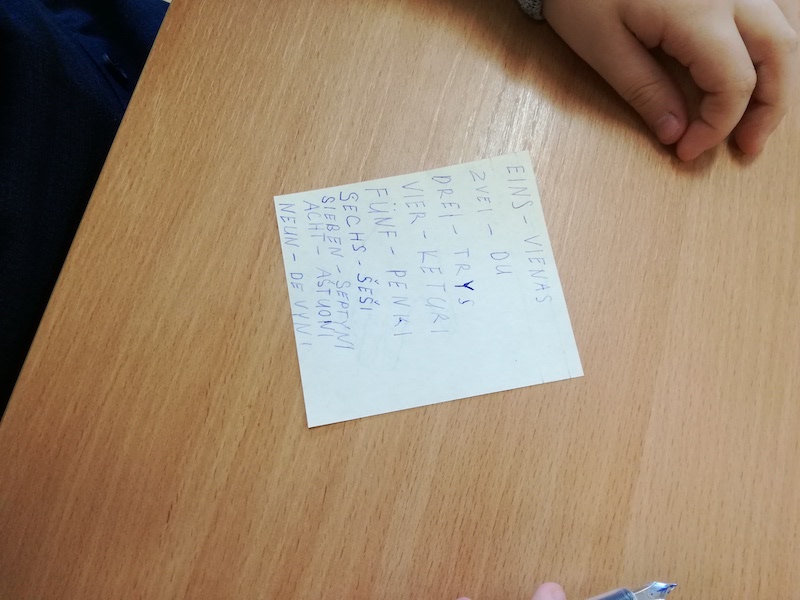 EINS - VIENAS
2VEI - DU
DREI - TRYS
VIER - KETURI
FÜNF - PENKI
SECHS - ŠEŠI
SIEBEN - SEPTYNI
ACHT - AŠTUONI
NEUN - DEVYNI